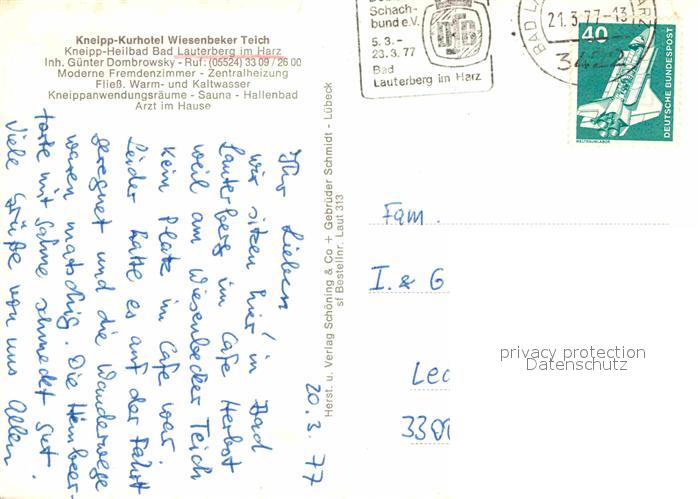 Kneipp-Kurhotel Wiesenbeker Teich
Kneipp-Heilbad Bad Lauterberg im Harz
Inh. Günter Dombrowsky - Ruf: (05524) 33 09 / 26 00
Moderne Fremdenzimmer - Zentralheizung
Fließ. Warm- und Kaltwasser
Kneippanwendungsräume - Sauna - Hallenbad
Arzt im Hause
20. 3. 77
Ihr Lieben
wir sitzen hier in Bad
Lauterberg im Cafe Herbst
weil am Wiesenbecker Teich
kein Platz im Cafe war.
Leider hatte es auf der Fahrt
geregnet und die Wanderwege
waren matschig. Die Himbeer-
torte mit Sahne schmeckt gut.
Viele Grüße von uns Allen
Herst. u. Verlag Schöning & Co + Gebrüder Schmidt - Lübeck
sf Bestellnr. Laut 313
Schach-
bund e.V.
5. 3. –
23.3.77
Bad
Lauterberg im Harz
BAD LA
ARZ
21.3.77-13
3422
40
DEUTSCHE BUNDESPOST
WELTRAUMLABOR
Fam.
I. & G
Lec
330
privacy protection
Datenschutz